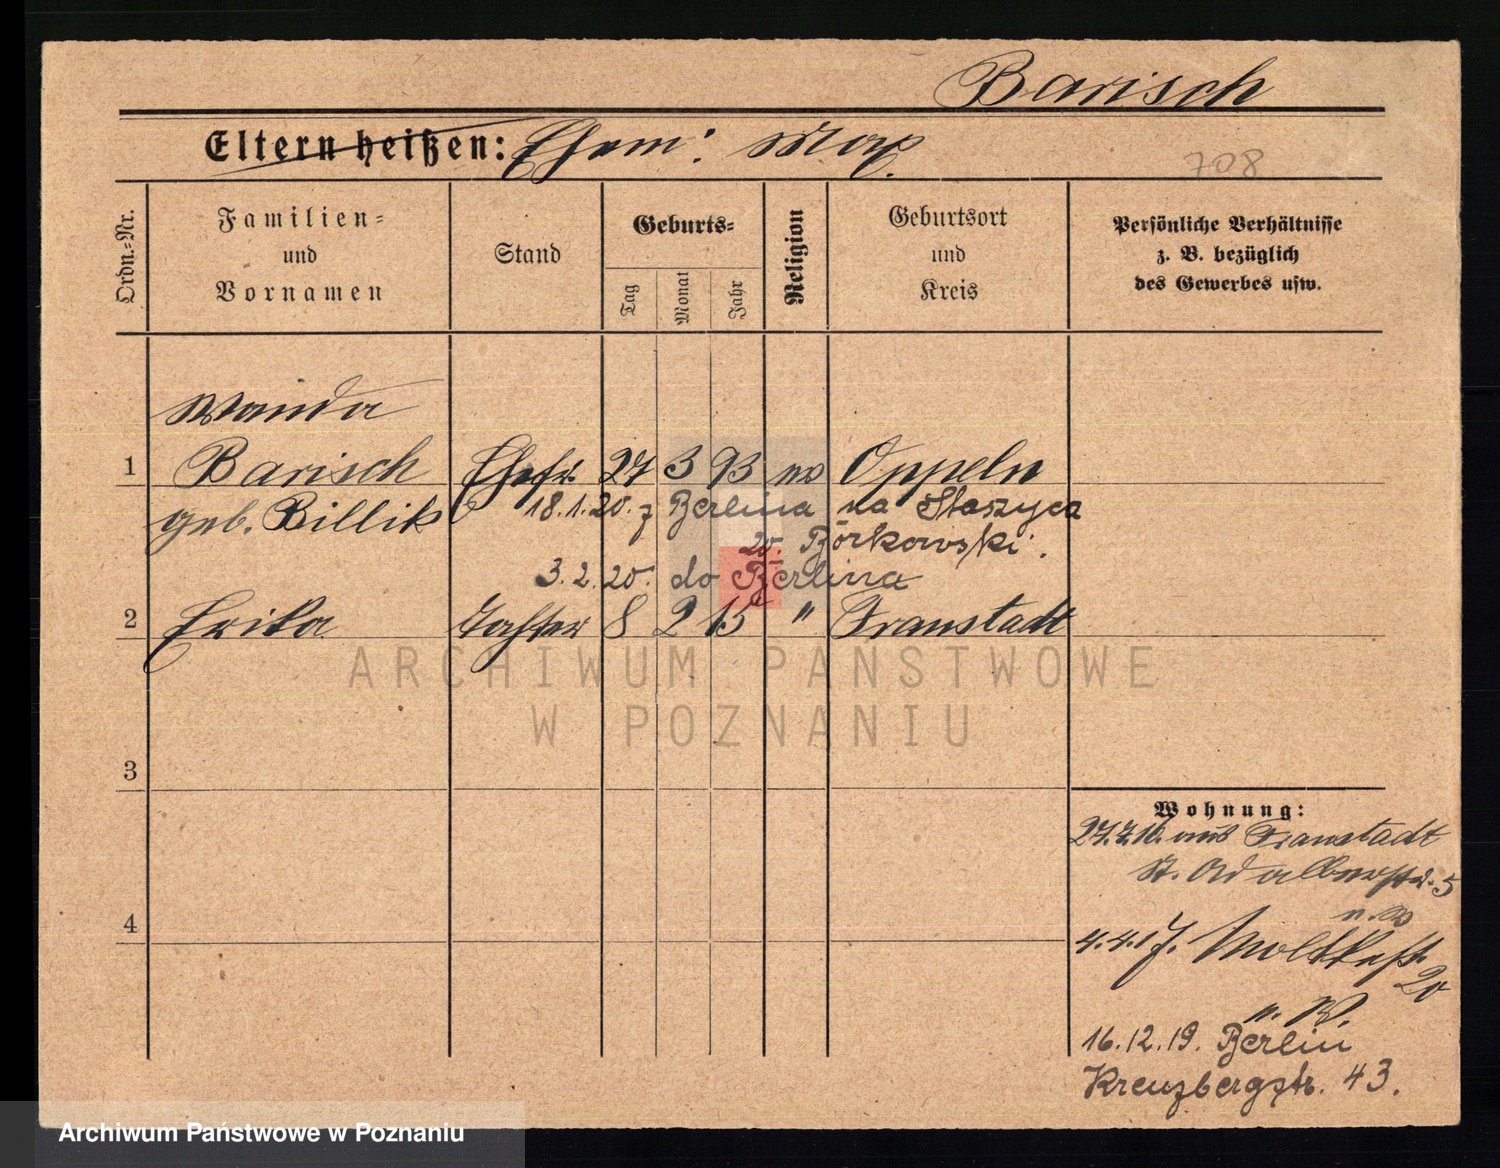 Barisch
Eltern heißen: Ehem: Max
708
Ordn.=Nr.
Familien=
und
Vornamen
Stand
Geburts=
Tag
Monat
Jahr
Religion
Geburtsort
und
Kreis
Persönliche Verhältnisse
z. B. bezüglich
des Gewerbes usw.
Wanda
1 Barisch Ehefr. 27 3 93 Oppeln
geb. Billik 18.1.20. z Berlina na Staszyca
20. Börkowski.
3.2.20. do Berlina
2 Erika Tochter 8 2 15 " Fraustadt
ARCHIWUM PAŃSTWOWE
W POZNANIU
3
Wohnung:
27.7.16. aus Fraustadt
St. Adalbertstr. 5
4
4.4.17. Moltkestr.
20
16.12.19. Berlin
Kreuzbergstr. 43.
Archiwum Państwowe w Poznaniu